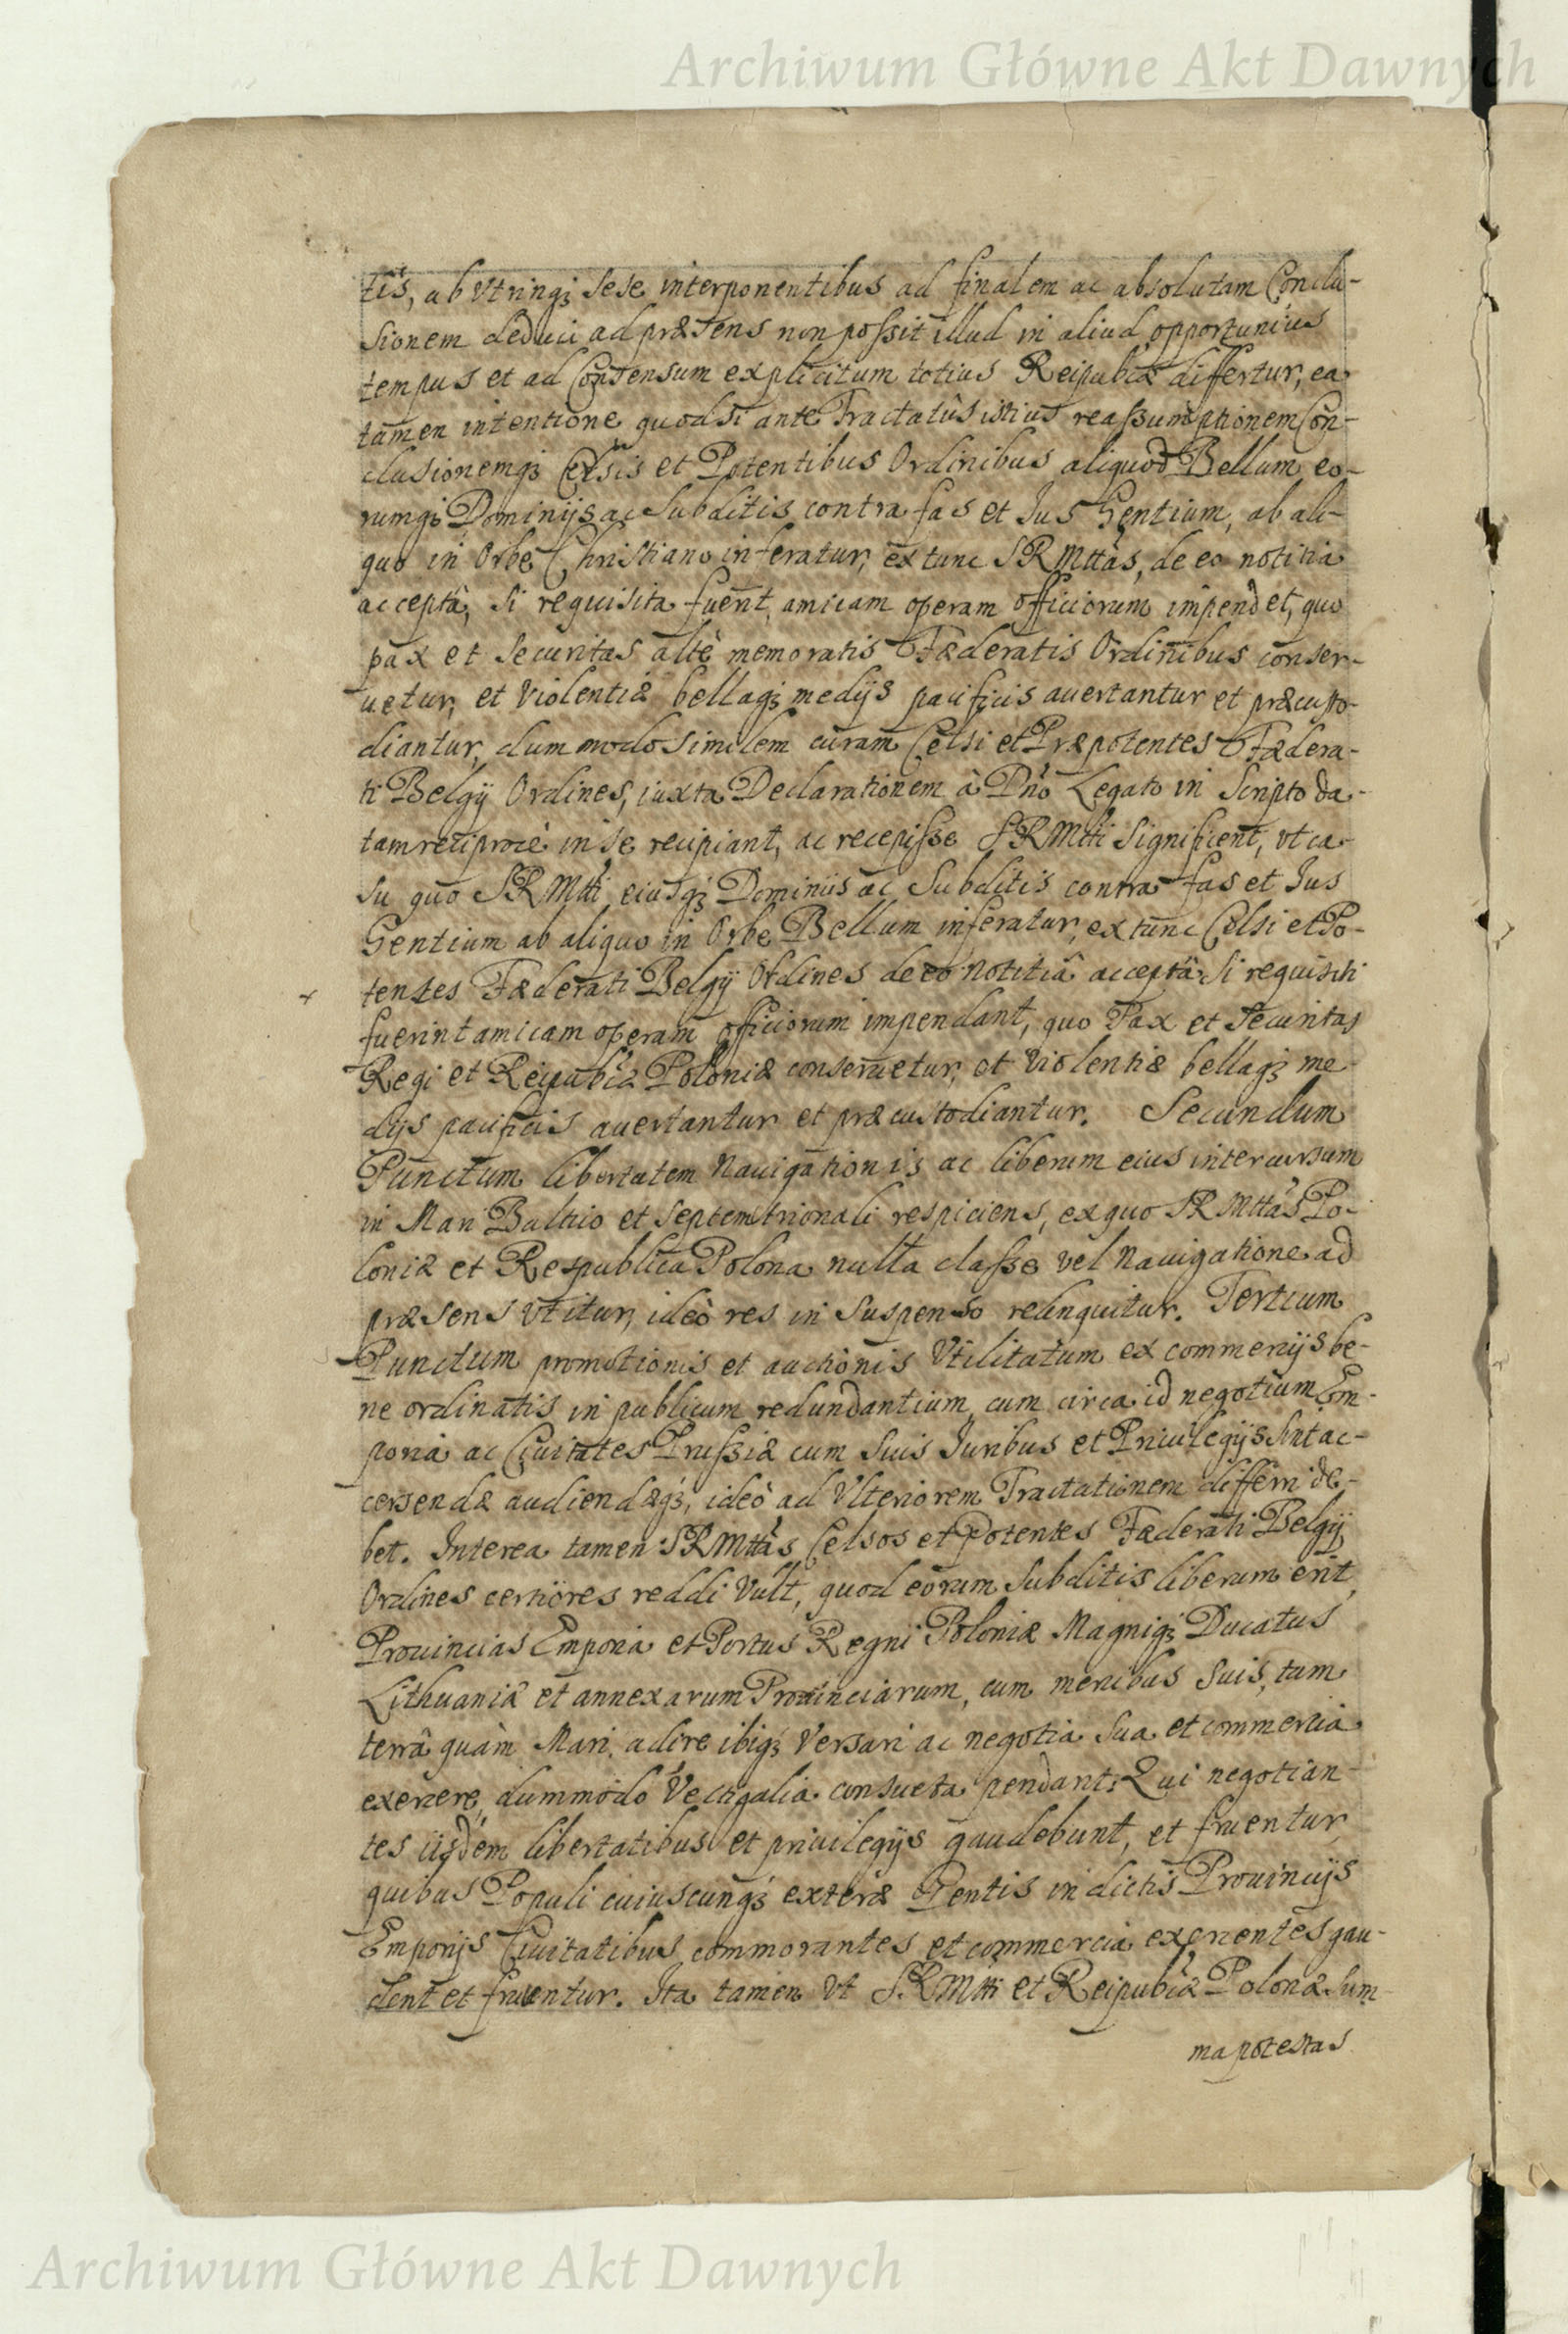 Archiwum Główne Akt Dawnych
tis, ab vtrinq₃ sese interponentibus ad finalem ac absolutam Conclu-
sionem deduci ad præsens non possit illud in aliud opportunius
tempus et ad Consensum explicitum totius Reipubcæ differtur, ea
tamen intentione quod si ante Tractatûs istius reassumptionem Con-
clusionemq₃ Celsis et Potentibus Ordinibus aliquod Bellum eo-
rumq₃ Dominijs ac Subditis contra fas et Jus Gentium, ab ali-
quo in Orbe Christiano inferatur, ex tunc SRMttas, de eo notitia
acceptâ, si requisita fuerit, amicam operam officiorum impendet, quo
pax et securitas altè memoratis Fæderatis Ordinibus conser-
uetur, et violentiæ bellaq₃ medijs pacificis auertantur et præcusto-
diantur, dummodo similem curam Celsi et Præpotentes Fædera-
ti Belgij Ordines, iuxta Declarationem à Dno Legato in Scripto da-
tam reciprocè in se recipiant, ac recepisse SRMtti significent, vt ca-
su quo SRMtti eiusq₃ Dominiis ac Subditis contra fas et Jus
Gentium ab aliquo in Orbe Bellum inferatur, ex tunc Celsi et Po-
tentes Fæderati Belgij Ordines de eo notitiâ acceptâ si requisiti
fuerint amicam operam officiorum impendant, quo Pax et Securitas
Regi et Reipubcæ Poloniæ conseruetur, et violentiæ bellaq₃ me-
dijs pacificis auertantur et præcustodiantur. Secundum
Punctum libertatem Nauigationis ac liberum eius intercursum
in Mari Balthio et Septemtrionali respiciens, ex quo SRMttas Po-
loniæ et Respublica Polona nulla classe vel Nauigatione ad
præsens vtitur, ideò res in suspenso relinquitur. Tertium
Punctum promotionis et auctionis Vtilitatum ex commercijs be-
ne ordinatis in publicum redundantium, cum circa id negotium Em-
poria ac Ciuitates Prussiæ cum suis Juribus et Priuilegijs sint ac-
cersendæ audiendæq₃, ideò ad Vlteriorem Tractationem differri de-
bet. Interea tamen SRMttas Celsos et Potentes Fæderati Belgij
Ordines certiores reddi Vult, quod eorum Subditis liberum erit,
Prouincias Emporia et Portus Regni Poloniæ Magniq₃ Ducatus
Lithuaniæ et annexarum Prouinciarum, cum mercibus suis, tam
terrâ quàm Mari, adire ibiq₃ Versari ac negotia sua et commercia
exercere, dummodo Vectigalia consueta pendant. Qui negotian-
tes iisdem libertatibus et priuilegijs gaudebunt, et fruentur
quibus Populi cuiuscunq₃ exteræ Gentis in dictis Prouincijs
Emporijs Ciuitatibus commorantes et commercia exercentes gau-
dent et fruuntur. Ita tamen vt SRMtti et Reipubcæ Polonæ Sum-
ma potestas
Archiwum Główne Akt Dawnych